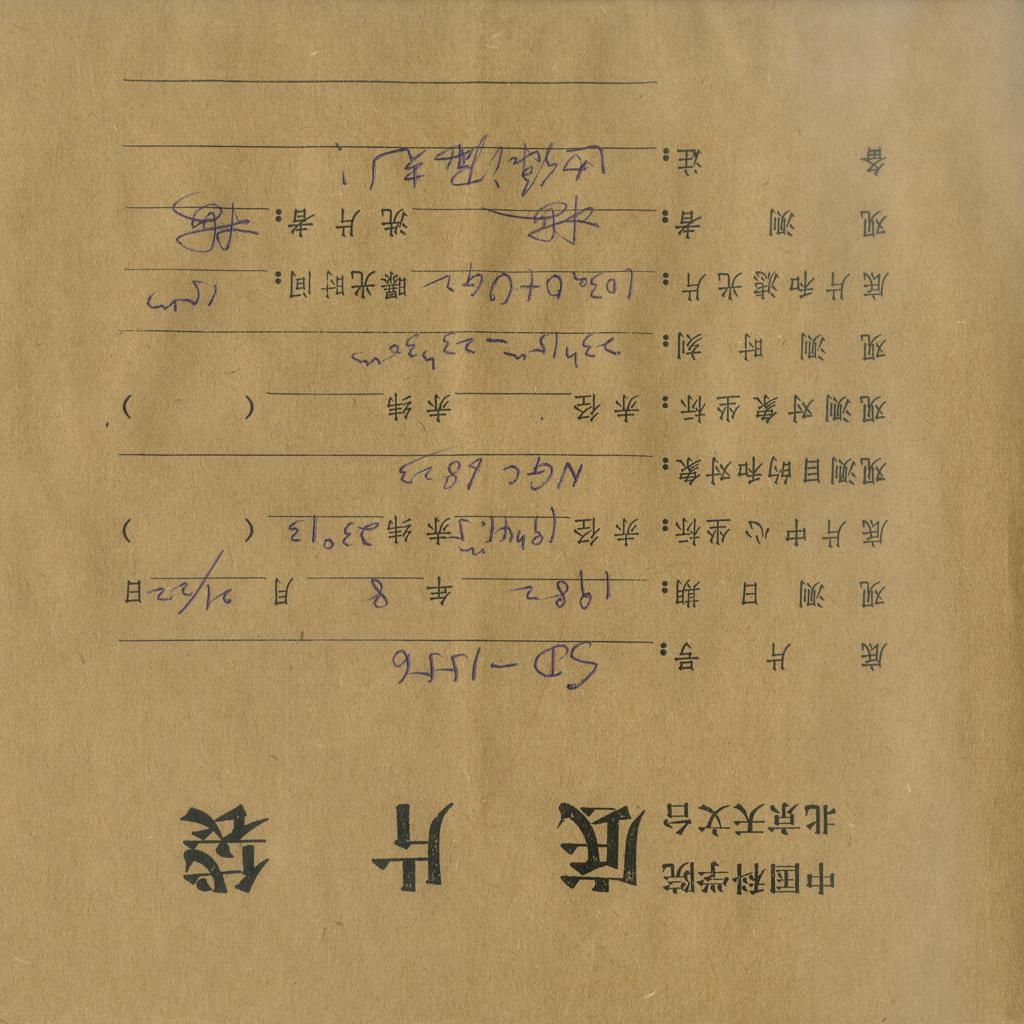 中国科学院
北京天文台
底片袋
底片号: SD-15556
观测日期: 1982年8月21/22日
底片中心坐标: 赤径 19h41.5m 赤纬 23°13 ( )
观测目的和对象: NGC 6823
观测对象坐标: 赤径 赤纬 ( )
观测时刻: 23h15m-23h30m
底片和滤光片: 103aO+UG2 曝光时间: 15m
观测者: 洗片者:
备注: 边缘漏光!